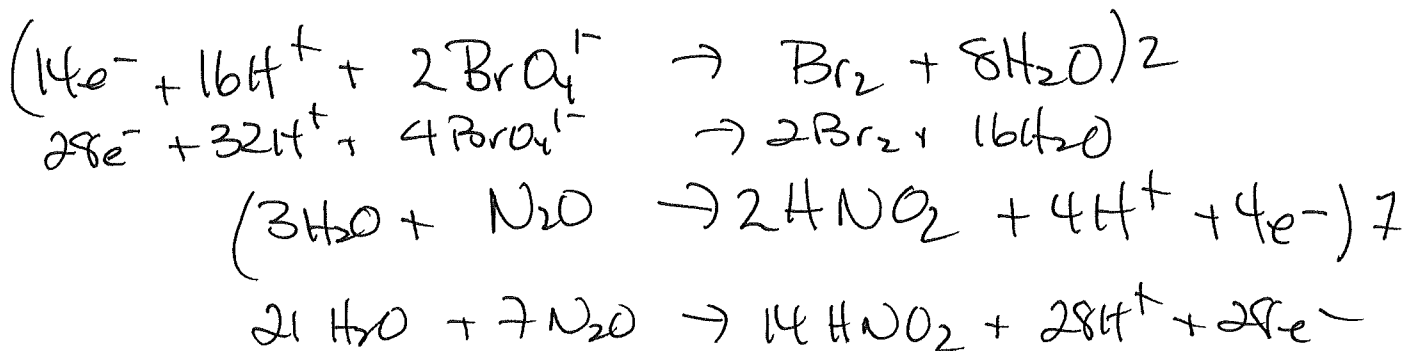 (14e⁻ + 16H⁺ + 2BrO₄¹⁻ → Br₂ + 8H₂O)2
28e⁻ + 32H⁺ + 4BrO₄¹⁻ → 2Br₂ + 16H₂O
(3H₂O + N₂O → 2HNO₂ + 4H⁺ + 4e⁻)7
21H₂O + 7N₂O → 14HNO₂ + 28H⁺ + 28e⁻